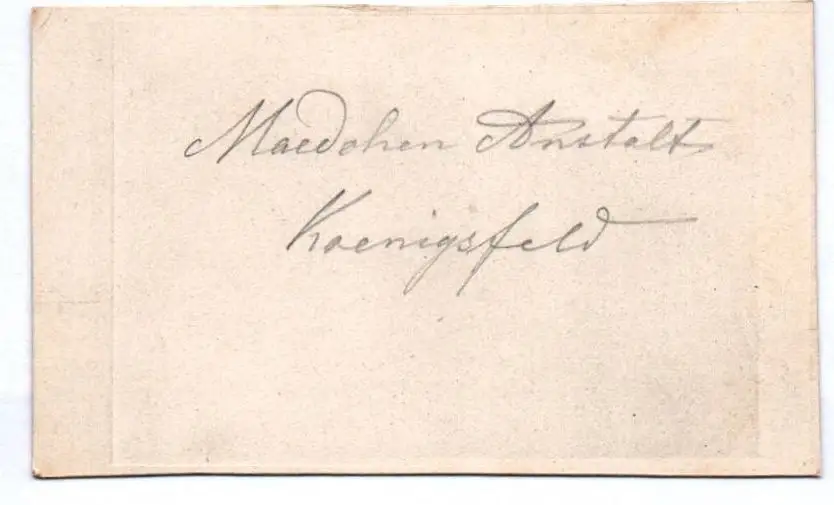 Maedchen Anstalt
Koenigsfeld